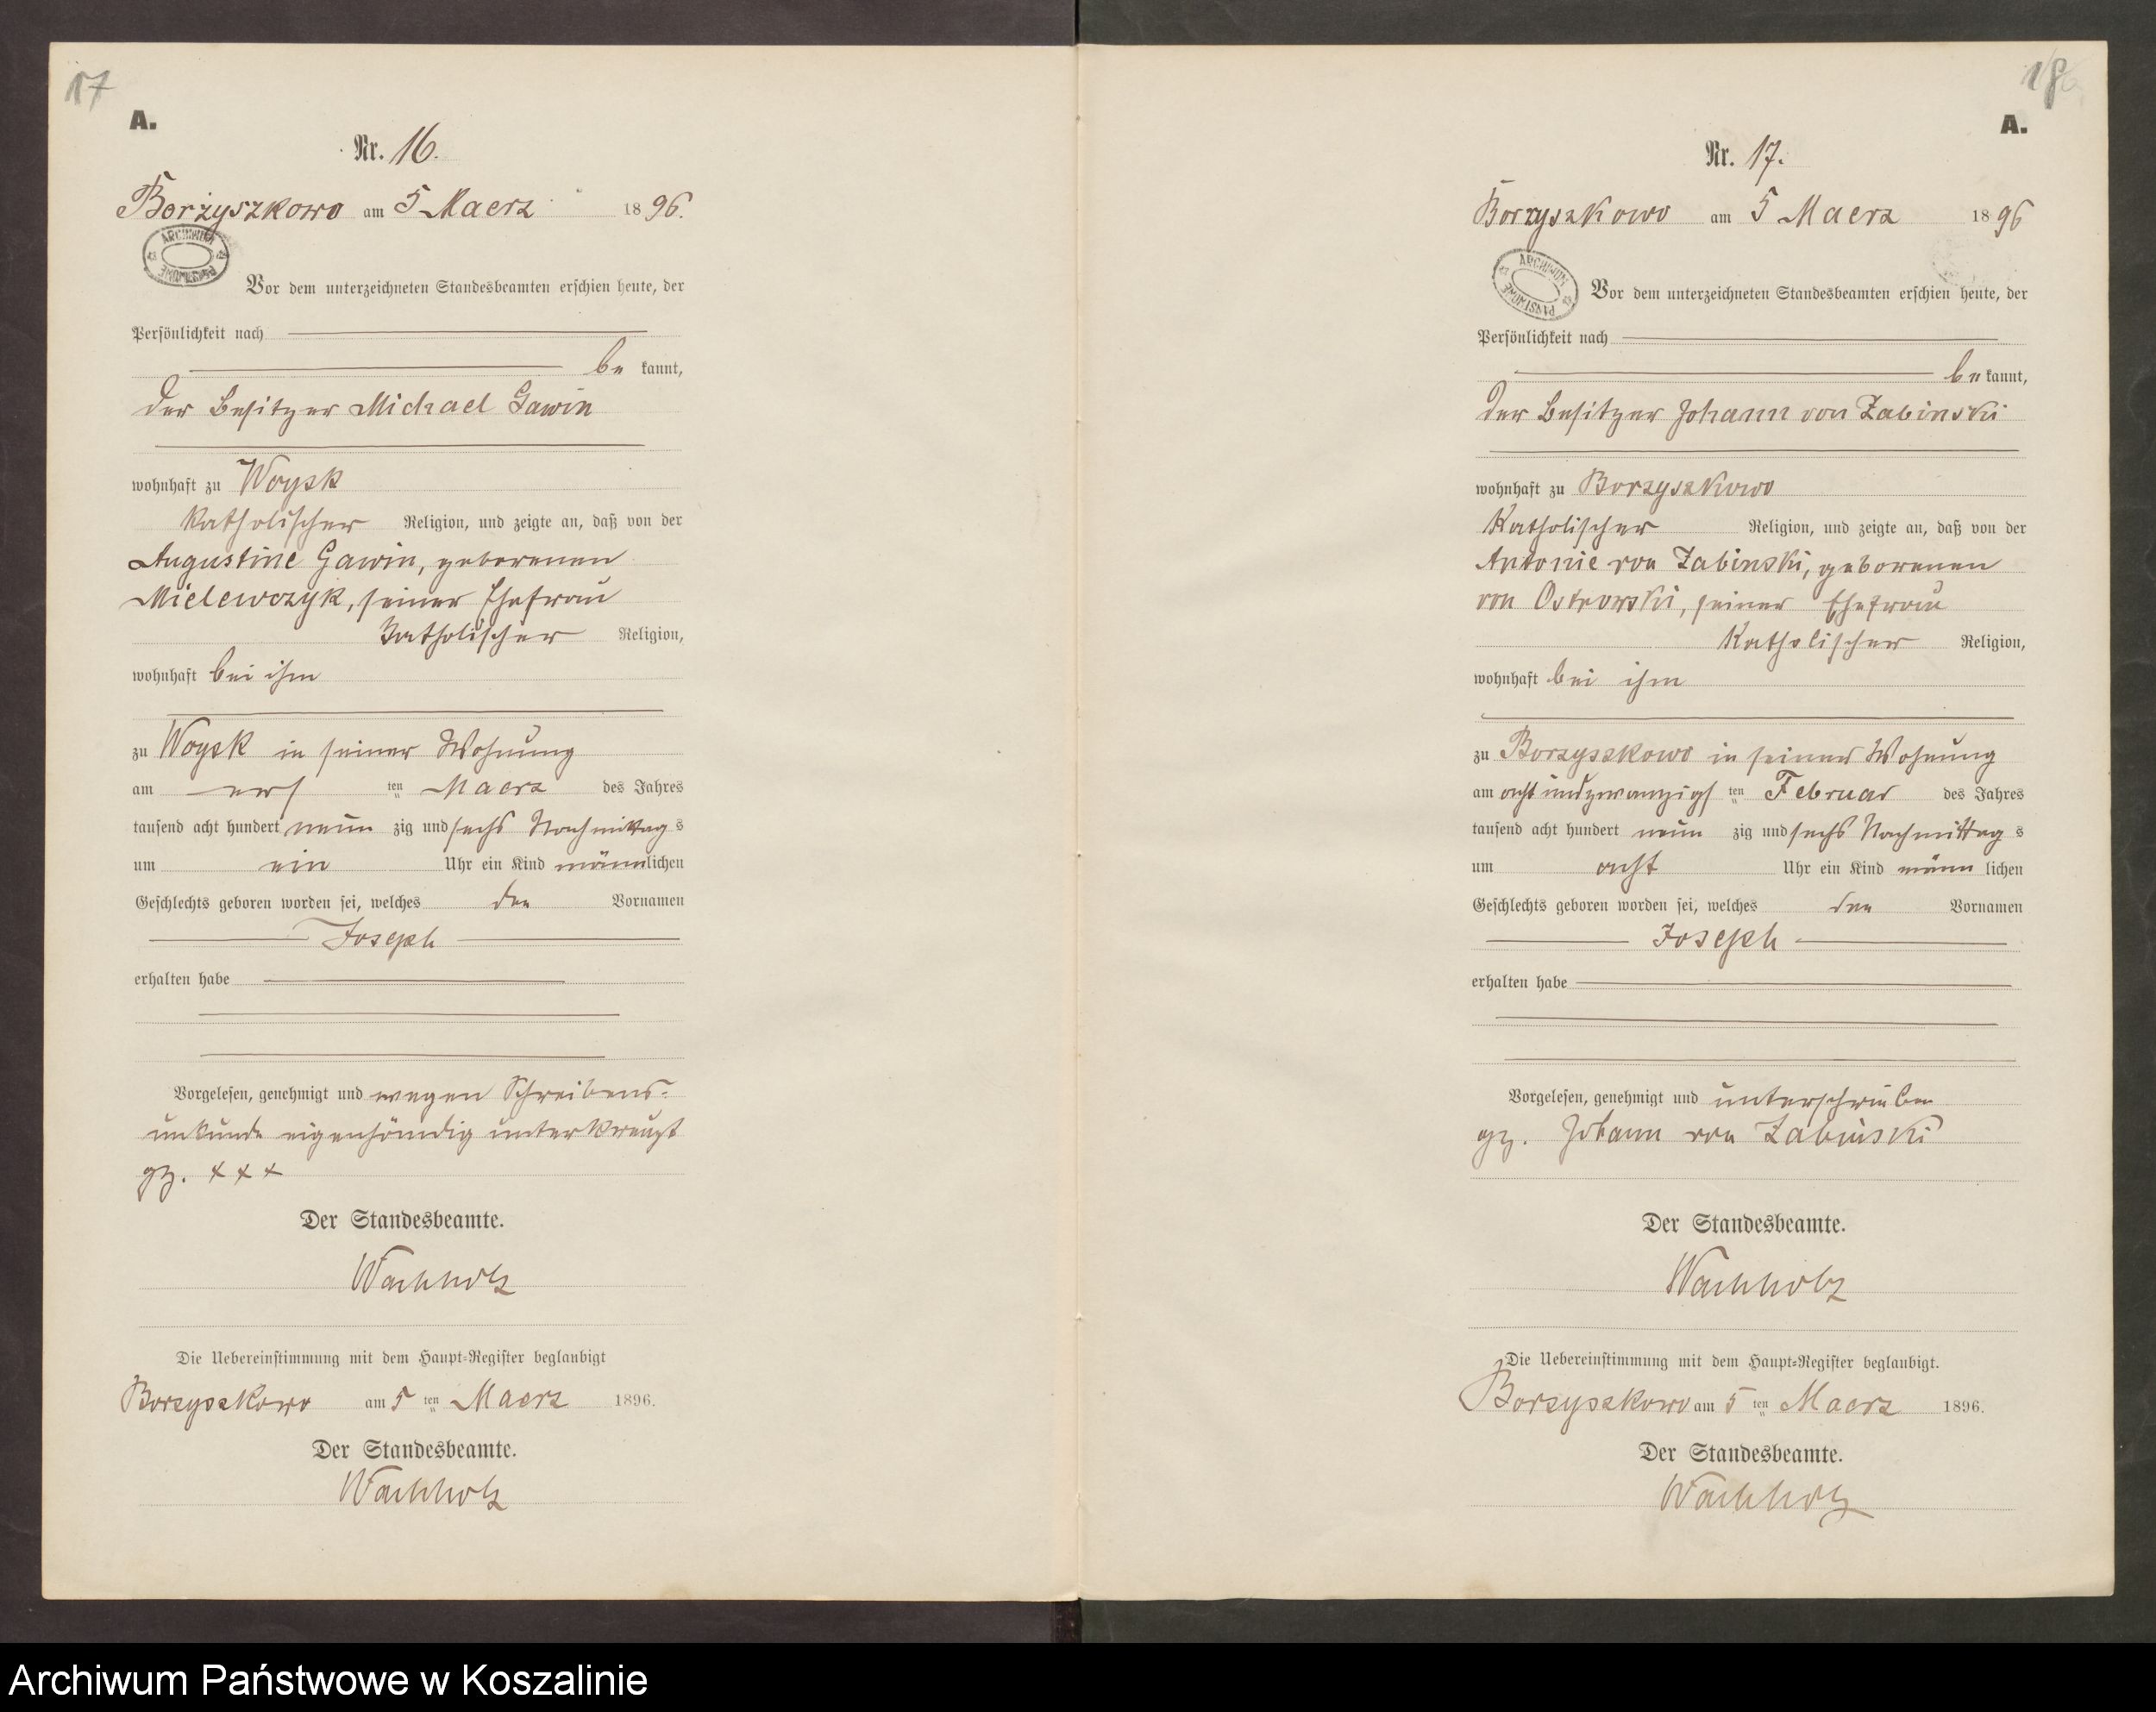 17
A.
Nr. 16.
Borzyszkowo am 5 Maerz 1896.
ARCHIWUM PAŃSTWOWE
Vor dem unterzeichneten Standesbeamten erschien heute, der
Persönlichkeit nach
be kannt,
der Besitzer Michael Gawin
wohnhaft zu Woysk
katholischer Religion, und zeigte an, daß von der
Augustine Gawin, geborenen
Mielewczyk, seiner Ehefrau
katholischer Religion,
wohnhaft bei ihm
zu Woysk in seiner Wohnung
am ers ten Maerz des Jahres
tausend acht hundert neun zig und sechs Nachmittag s
um ein Uhr ein Kind männlichen
Geschlechts geboren worden sei, welches den Vornamen
Joseph
erhalten habe
Vorgelesen, genehmigt und wegen Schreibens-
unkunde eigenhändig unterkreuzt
gz. + + +
Der Standesbeamte.
Wachholz
Die Uebereinstimmung mit dem Haupt-Register beglaubigt
Borzyszkowo am 5 ten Maerz 1896.
Der Standesbeamte.
Wachholz
18
A.
Nr. 17.
Borzyszkowo am 5 Maerz 1896
ARCHIWUM PAŃSTWOWE
Vor dem unterzeichneten Standesbeamten erschien heute, der
Persönlichkeit nach
be kannt,
der Besitzer Johann von Zabinski
wohnhaft zu Borzyszkowo
Katholischer Religion, und zeigte an, daß von der
Antonie von Zabinski, geborenen
von Ostrowski, seiner Ehefrau
Katholischer Religion,
wohnhaft bei ihm
zu Borzyszkowo in seiner Wohnung
am acht und zwanzigs ten Februar des Jahres
tausend acht hundert neun zig und sechs Nachmittag s
um acht Uhr ein Kind männ lichen
Geschlechts geboren worden sei, welches den Vornamen
Joseph
erhalten habe
Vorgelesen, genehmigt und unterschrieben
gz. Johann von Zabinski
Der Standesbeamte.
Wachholz
Die Uebereinstimmung mit dem Haupt-Register beglaubigt.
Borzyszkowo am 5 ten Maerz 1896.
Der Standesbeamte.
Wachholz
Archiwum Państwowe w Koszalinie